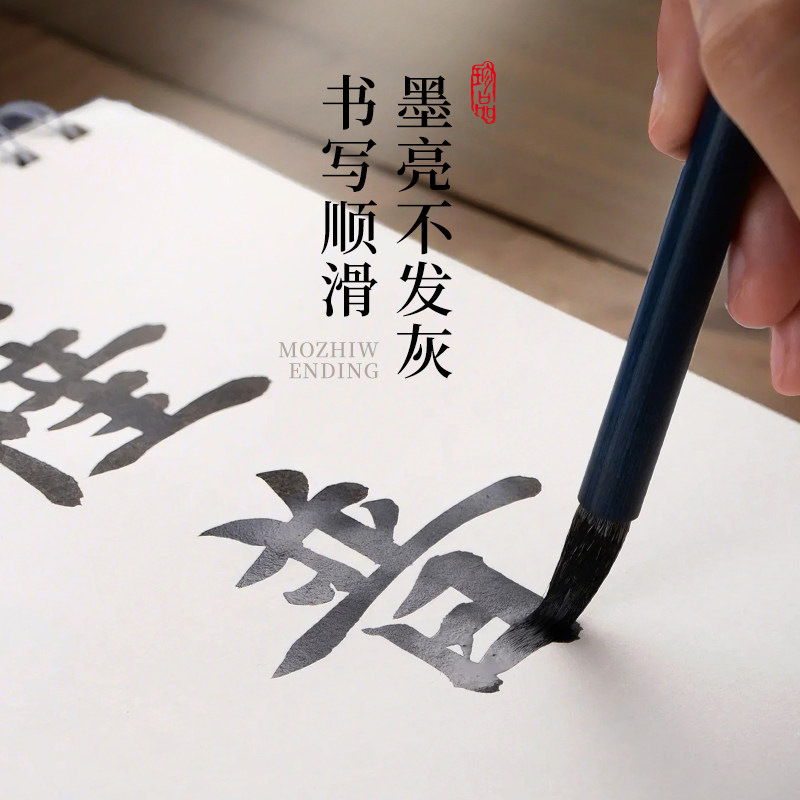 珍品
墨亮不发灰
书写顺滑
MOZHIW
ENDING